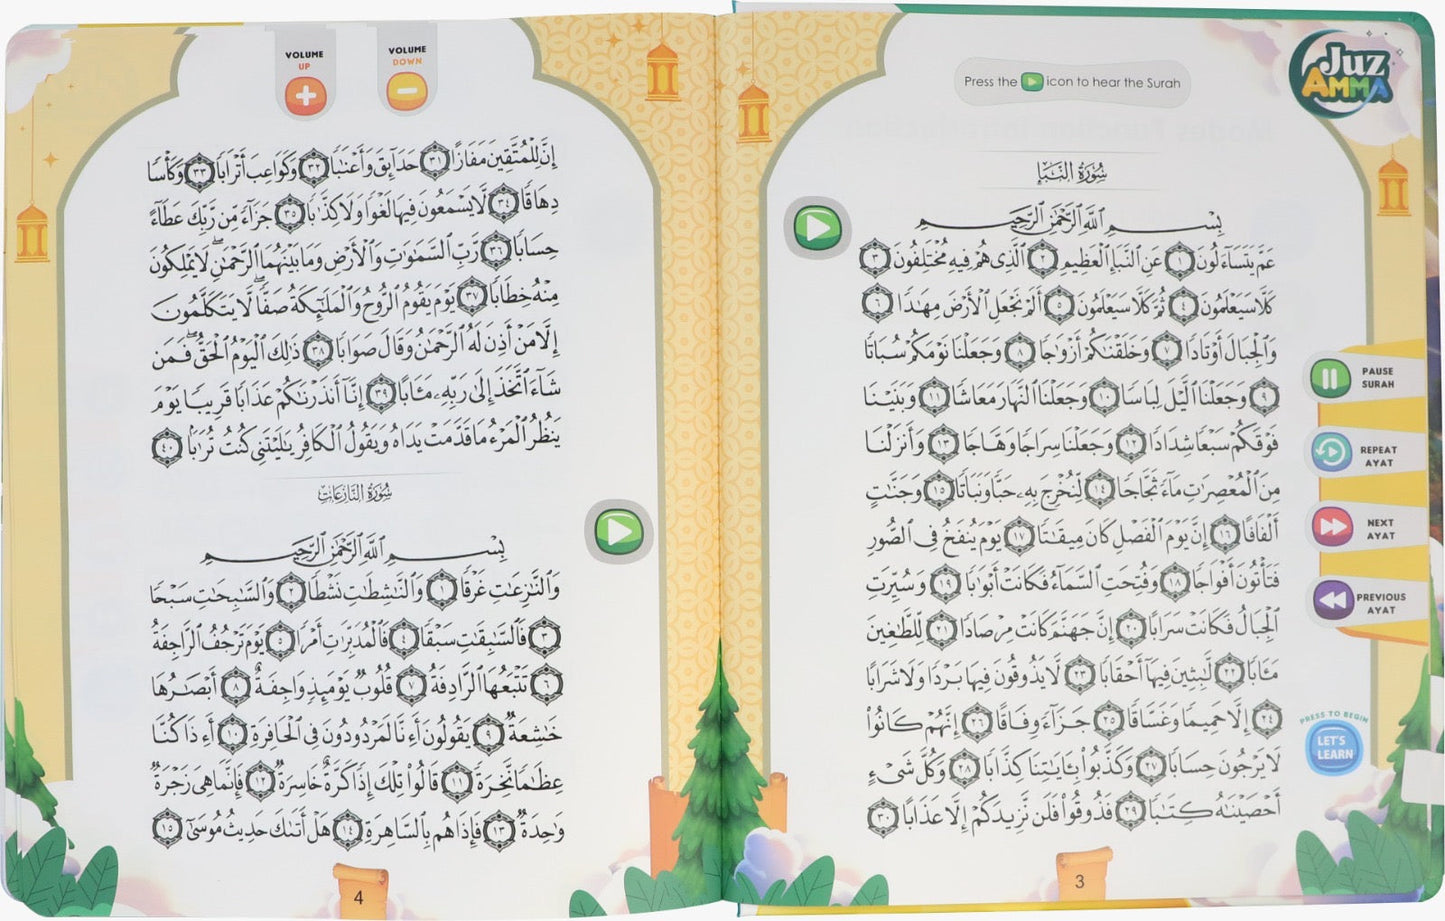 Press the icon to hear the Surah
Juz
AMMA
سُورَةُ النَّبَإِ
بِسْمِ اللَّهِ الرَّحْمَٰنِ الرَّحِيمِ
عَمَّ يَتَسَآءَلُونَ ١ عَنِ ٱلنَّبَإِ ٱلْعَظِيمِ ٢ ٱلَّذِى هُمْ فِيهِ مُخْتَلِفُونَ ٣
كَلَّا سَيَعْلَمُونَ ٤ ثُمَّ كَلَّا سَيَعْلَمُونَ ٥ أَلَمْ نَجْعَلِ ٱلْأَرْضَ مِهَٰدًا ٦
وَٱلْجِبَالَ أَوْتَادًا ٧ وَخَلَقْنَٰكُمْ أَزْوَٰجًا ٨ وَجَعَلْنَا نَوْمَكُمْ سُبَاتًا
٩ وَجَعَلْنَا ٱلَّيْلَ لِبَاسًا ١٠ وَجَعَلْنَا ٱلنَّهَارَ مَعَاشًا ١١ وَبَنَيْنَا
فَوْقَكُمْ سَبْعًا شِدَادًا ١٢ وَجَعَلْنَا سِرَاجًا وَهَّاجًا ١٣ وَأَنزَلْنَا
مِنَ ٱلْمُعْصِرَٰتِ مَآءً ثَجَّاجًا ١٤ لِّنُخْرِجَ بِهِۦ حَبًّا وَنَبَاتًا ١٥ وَجَنَّٰتٍ
أَلْفَافًا ١٦ إِنَّ يَوْمَ ٱلْفَصْلِ كَانَ مِيقَٰتًا ١٧ يَوْمَ يُنفَخُ فِى ٱلصُّورِ
فَتَأْتُونَ أَفْوَاجًا ١٨ وَفُتِحَتِ ٱلسَّمَآءُ فَكَانَتْ أَبْوَٰبًا ١٩ وَسُيِّرَتِ
ٱلْجِبَالُ فَكَانَتْ سَرَابًا ٢٠ إِنَّ جَهَنَّمَ كَانَتْ مِرْصَادًا ٢١ لِّلطَّٰغِينَ
مَـَٔابًا ٢٢ لَّٰبِثِينَ فِيهَآ أَحْقَابًا ٢٣ لَّا يَذُوقُونَ فِيهَا بَرْدًا وَلَا شَرَابًا
٢٤ إِلَّا حَمِيمًا وَغَسَّاقًا ٢٥ جَزَآءً وِفَاقًا ٢٦ إِنَّهُمْ كَانُوا۟
لَا يَرْجُونَ حِسَابًا ٢٧ وَكَذَّبُوا۟ بِـَٔايَٰتِنَا كِذَّابًا ٢٨ وَكُلَّ شَىْءٍ
أَحْصَيْنَٰهُ كِتَٰبًا ٢٩ فَذُوقُوا۟ فَلَن نَّزِيدَكُمْ إِلَّا عَذَابًا ٣٠
PAUSE
SURAH
REPEAT
AYAT
NEXT
AYAT
PREVIOUS
AYAT
PRESS TO BEGIN
LET'S
LEARN
3
VOLUME
UP
VOLUME
DOWN
إِنَّ لِلْمُتَّقِينَ مَفَازًا ٣١ حَدَآئِقَ وَأَعْنَٰبًا ٣٢ وَكَوَاعِبَ أَتْرَابًا ٣٣ وَكَأْسًا
دِهَاقًا ٣٤ لَّا يَسْمَعُونَ فِيهَا لَغْوًا وَلَا كِذَّٰبًا ٣٥ جَزَآءً مِّن رَّبِّكَ عَطَآءً
حِسَابًا ٣٦ رَّبِّ ٱلسَّمَٰوَٰتِ وَٱلْأَرْضِ وَمَا بَيْنَهُمَا ٱلرَّحْمَٰنِ ۖ لَا يَمْلِكُونَ
مِنْهُ خِطَابًا ٣٧ يَوْمَ يَقُومُ ٱلرُّوحُ وَٱلْمَلَٰٓئِكَةُ صَفًّا ۖ لَّا يَتَكَلَّمُونَ
إِلَّا مَنْ أَذِنَ لَهُ ٱلرَّحْمَٰنُ وَقَالَ صَوَابًا ٣٨ ذَٰلِكَ ٱلْيَوْمُ ٱلْحَقُّ ۖ فَمَن
شَآءَ ٱتَّخَذَ إِلَىٰ رَبِّهِۦ مَـَٔابًا ٣٩ إِنَّآ أَنذَرْنَٰكُمْ عَذَابًا قَرِيبًا يَوْمَ
يَنظُرُ ٱلْمَرْءُ مَا قَدَّمَتْ يَدَاهُ وَيَقُولُ ٱلْكَافِرُ يَٰلَيْتَنِى كُنتُ تُرَٰبًا ٤٠
سُورَةُ النَّازِعَاتِ
بِسْمِ اللَّهِ الرَّحْمَٰنِ الرَّحِيمِ
وَٱلنَّٰزِعَٰتِ غَرْقًا ١ وَٱلنَّٰشِطَٰتِ نَشْطًا ٢ وَٱلسَّٰبِحَٰتِ سَبْحًا
٣ فَٱلسَّٰبِقَٰتِ سَبْقًا ٤ فَٱلْمُدَبِّرَٰتِ أَمْرًا ٥ يَوْمَ تَرْجُفُ ٱلرَّاجِفَةُ
٦ تَتْبَعُهَا ٱلرَّادِفَةُ ٧ قُلُوبٌ يَوْمَئِذٍ وَاجِفَةٌ ٨ أَبْصَٰرُهَا
خَٰشِعَةٌ ٩ يَقُولُونَ أَءِنَّا لَمَرْدُودُونَ فِى ٱلْحَافِرَةِ ١٠ أَءِذَا كُنَّا
عِظَٰمًا نَّخِرَةً ١١ قَالُوا۟ تِلْكَ إِذًا كَرَّةٌ خَاسِرَةٌ ١٢ فَإِنَّمَا هِىَ زَجْرَةٌ
وَٰحِدَةٌ ١٣ فَإِذَا هُم بِٱلسَّاهِرَةِ ١٤ هَلْ أَتَىٰكَ حَدِيثُ مُوسَىٰٓ ١٥
4